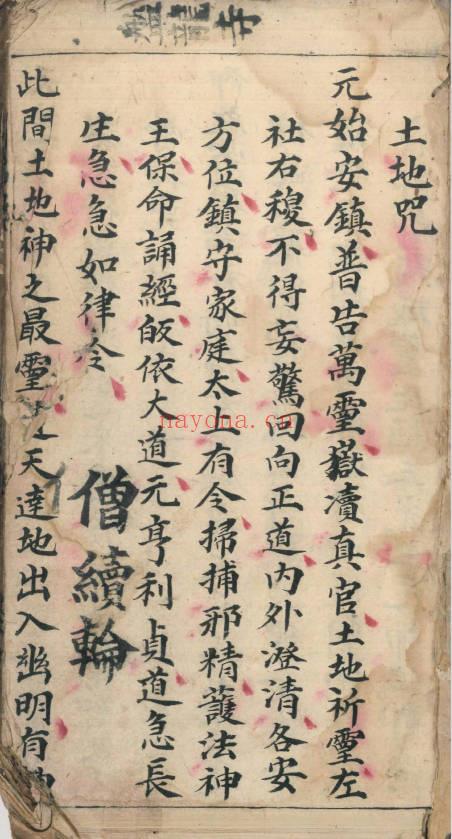 龍寺
土地咒
元始安鎮普告萬靈嶽瀆真官土地祈靈左
社右稷不得妄驚回向正道內外澄清各安
方位鎮守家庭太上有令掃捕邪精護法神
王保命誦經皈依大道元亨利貞道急長
生急急如律令
僧續輪
此間土地神之最靈天達地出入幽明有
nayona.cn